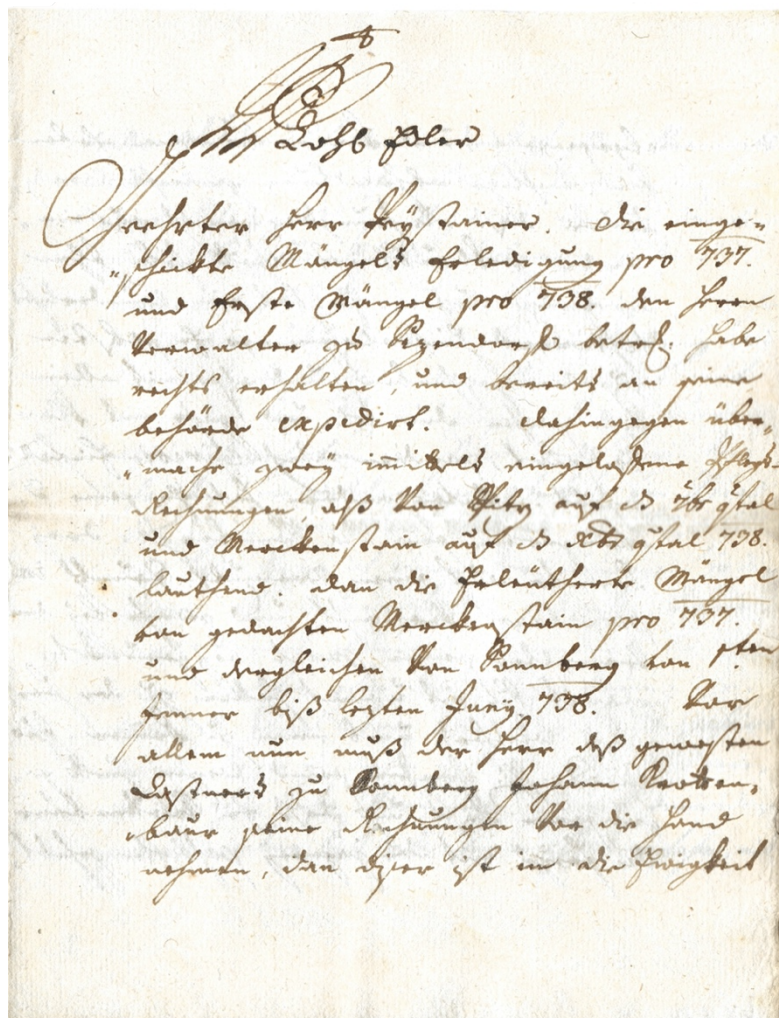 Wohl Edler
Geehrter Herr Preystainer. Die einge=
=schickte Mängels Erledigung pro 737.
und Erste Mängel pro 738. den Herrn
Verwalter zu Sizendorf betref: habe
rechts erhalten, und bereits an seine
behörde expedirt. Dahingegen über=
=mache zwey immitels eingeloffene
Rechnungen, alß von auf 7br qtal
und Merckenstain auf Xbr qtal 738.
lauthend. dan die Erleütherte Mängel
von gedachten Merckenstain pro 737.
und dergleichen von Sonnberg von 1ten
Jenner biß lezten Juny 738. Vor
allem nun muß der Herr deß gewesten
Castners zu Sonnberg Johann Krotten=
=baur seine Rechnungen vor die Hand
nehmen, dan diser ist in die Ewigkeit